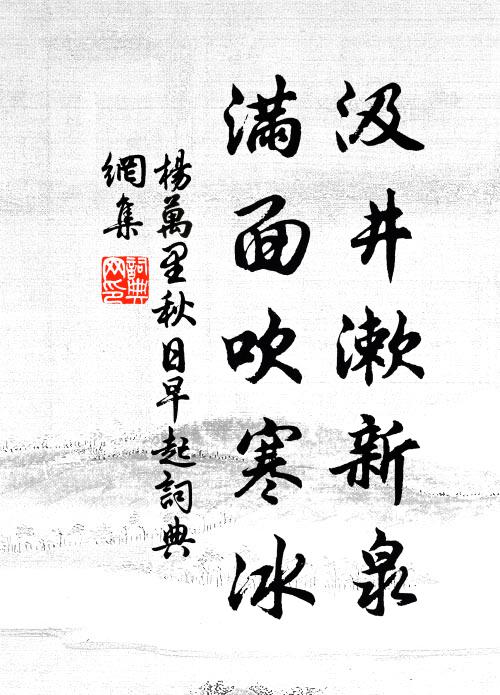 汲井漱新泉
滿面吹寒冰
楊萬里秋日早起詞典
網集
詞典
网印